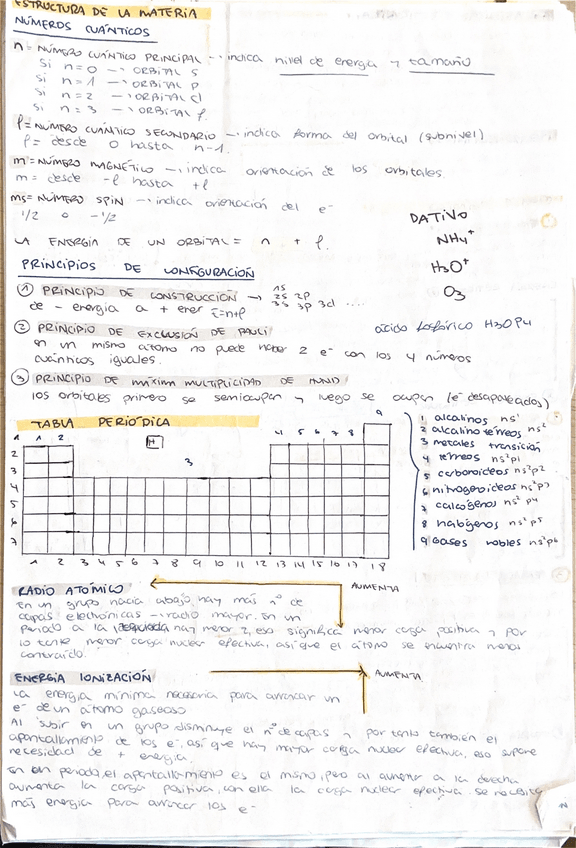 ESTRUCTURA DE LA MATERIA
NÚMEROS CUÁNTICOS
n = NÚMERO CUÁNTICO PRINCIPAL → indica nivel de energía y tamaño
Si n=0 → ORBITAL S
Si n=1 → ORBITAL P
Si n=2 → ORBITAL d
Si n=3 → ORBITAL f.
l = NÚMERO CUÁNTICO SECUNDARIO → indica forma del orbital (subnivel)
l = desde 0 hasta n-1.
m = NÚMERO MAGNÉTICO → indica orientación de los orbitales.
m = desde -l hasta +l
ms = NÚMERO SPIN → indica orientación del e-
1/2 o -1/2
DATIVO
NH4+
H3O+
O3
LA ENERGIA DE UN ORBITAL = n + l.
PRINCIPIOS DE CONFIGURACIÓN
① PRINCIPIO DE CONSTRUCCIÓN → 1s
2s 2p
3s 3p 3d ....
de - energia a + ener E=n+l
② PRINCIPIO DE EXCLUSIÓN DE PAULI
ácido fosfórico H3PO4
en un mismo átomo no puede haber 2 e- con los 4 números
cuánticos iguales.
③ PRINCIPIO DE MÁXIMA MULTIPLICIDAD DE HUND
los orbitales primero se semiocupan y luego se ocupan (e- desapareados)
TABLA PERIÓDICA
1 1 2 H 3 4 5 6 7 8 9
2
3
4
5
6
7
1 2 3 4 5 6 7 8 9 10 11 12 13 14 15 16 17 18
1 alcalinos ns1
2 alcalino térreos ns2
3 metales transición
4 térreos ns2p1
5 carboroideos ns2p2
6 nitrogenoideos ns2p3
7 calcógenos ns2p4
8 halógenos ns2p5
9 Gases nobles ns2p6
RADIO ATÓMICO
AUMENTA
En un grupo hacia abajo, hay más nº de
capas electrónicas → radio mayor. En un
periodo a la hay menor Z, eso significa menor carga positiva y por
lo tanto menor carga nuclear efectiva, así que el átomo se encuentra menos
contraído.
ENERGÍA IONIZACIÓN
AUMENTA
La energía mínima necesaria para arrancar un
e- de un átomo gaseoso
Al subir en un grupo disminuye el nº de capas y por tanto también el
apantallamiento de los e-, así que hay mayor carga nuclear efectiva, eso supone
necesidad de + energía.
En un periodo, el apantallamiento es el mismo, pero al aumentar a la derecha
aumenta la carga positiva, con ella la carga nuclear efectiva. Se necesita
más energía para arrancar los e-